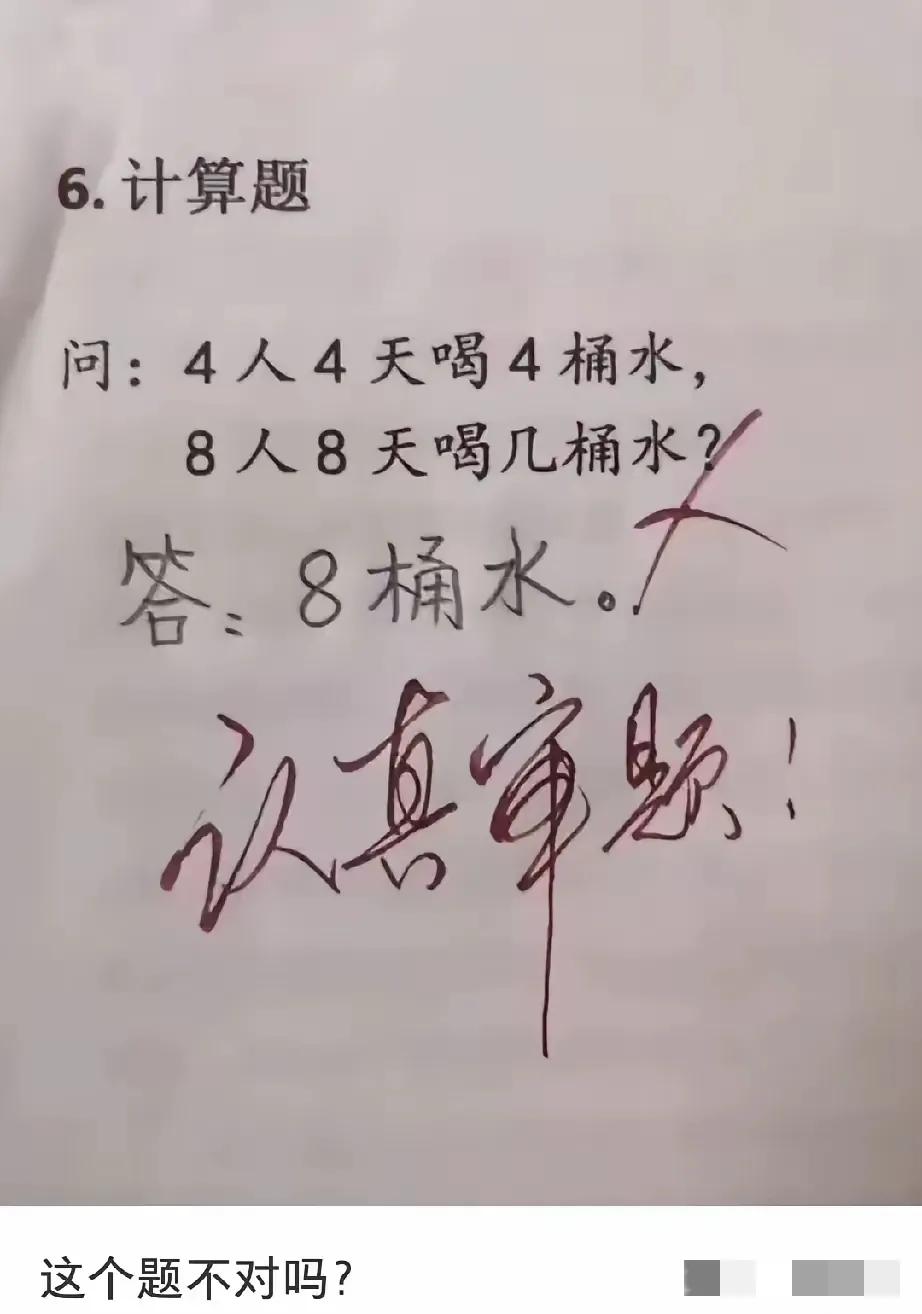 6. 计算题
问：4人4天喝4桶水，
8人8天喝几桶水？
答：8桶水。
认真审题！
这个题不对吗？